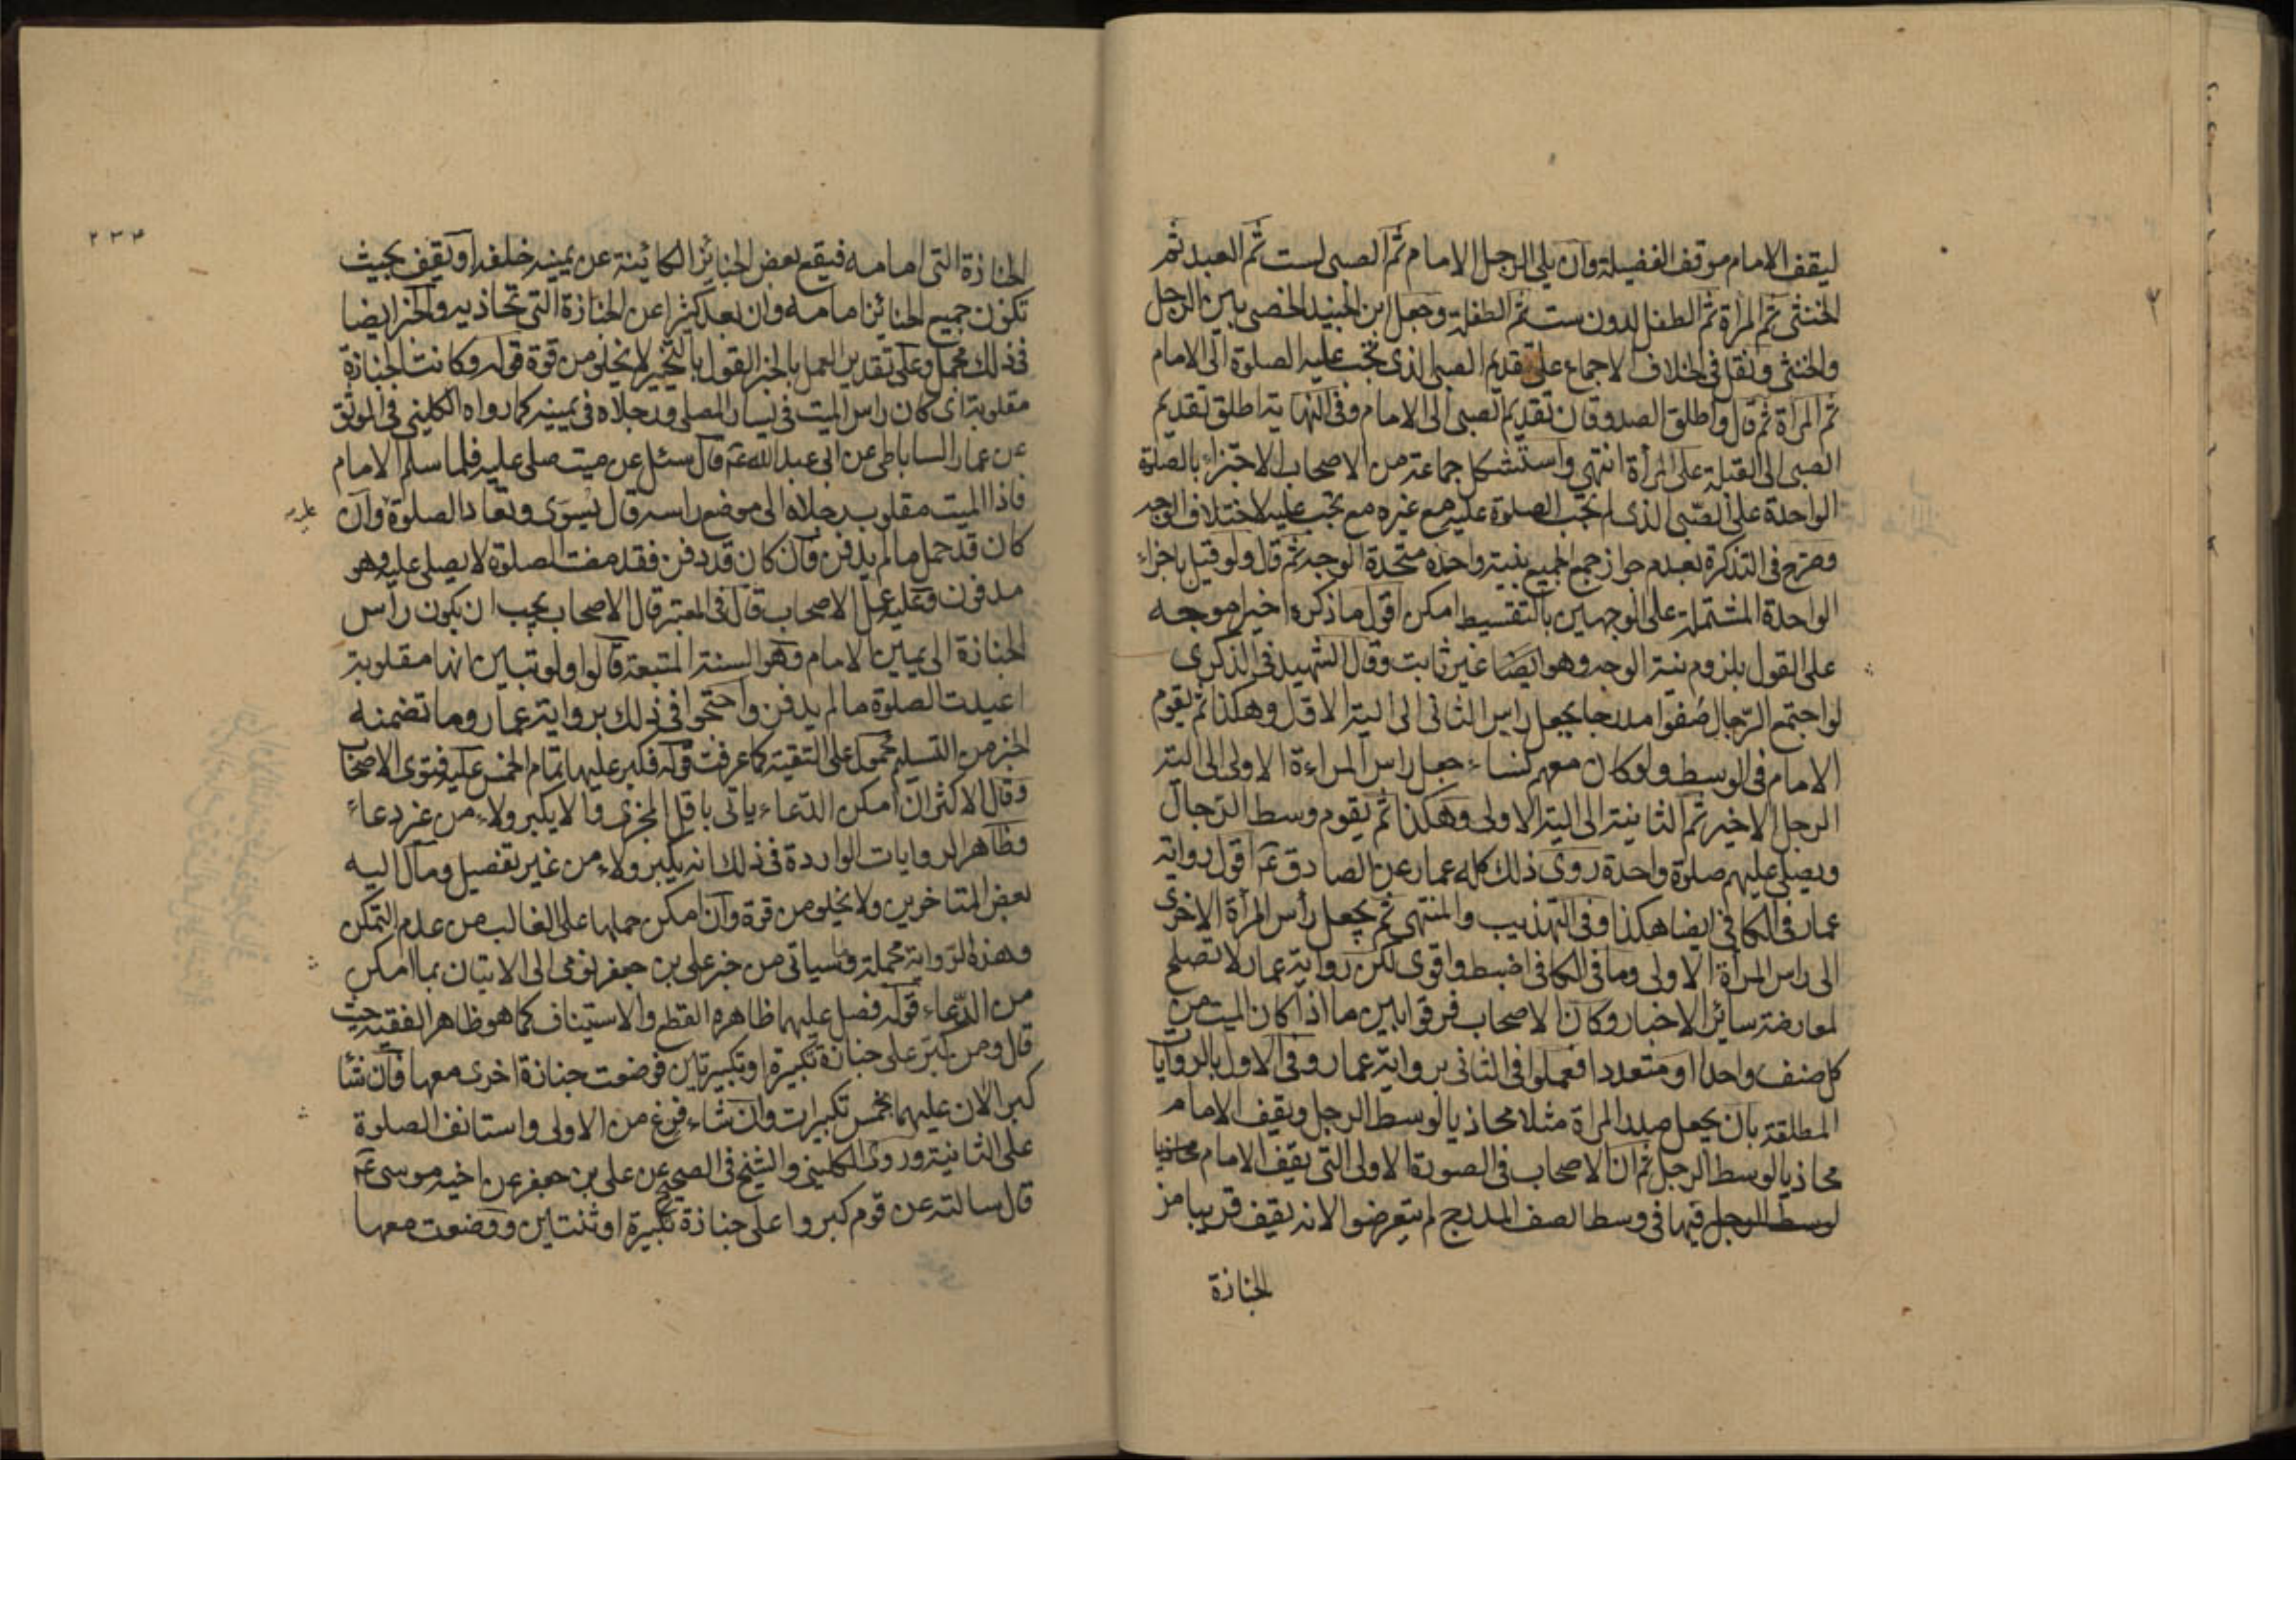 ليقف الامام موقف الفضيلة وان يلى الرجل الامام ثم الصبى لست ثم العبد ثم
الخنثى ثم المراة ثم الطفل لدون ست ثم الطفلة وجعل ابن الجنيد الخصى بين الرجل
والخنثى ونقل فى الخلاف الاجماع على تقديم الصبى الذى تجب عليه الصلوة الى الامام
ثم المراة ثم قال واطلق الصدوقان تقديم الصبى الى الامام وفى النهاية اطلق تقديم
الصبى الى القبلة على المرأة انتهى واستشكل جماعة من الاصحاب الاجتزاء بالصلوة
الواحدة على الصبى الذى لم تجب الصلوة عليه مع غيره مع تجب عليه لاختلاف الوجه
وصرح فى التذكرة بعدم جواز جمع الجميع بنية واحدة متحدة الوجه ثم قال ولو قيل باجزاء
الواحدة المشتملة على الوجهين بالتقسيط امكن اقول ما ذكره اخيرا موجه
على القول بلزوم نية الوجه وهو ايضا غير ثابت وقال الشهيد فى الذكرى
لو اجتمع الرجال صفوا مدرجا يجعل راس الثانى الى الية الاول وهكذا ثم يقوم
الامام فى الوسط ولو كان معهم نساء جعل راس المراءة الاولى الى الية
الرجل الاخير ثم الثانية الى الية الاولى وهكذا ثم يقوم وسط الرجال
ويصلى عليهم صلوة واحدة روى ذلك كله عمار عن الصادق عم اقول رواية
عمار فى الكافى ايضا هكذا وفى التهذيب والمنتهى ثم يجعل رأس المرأة الاخرى
الى راس المرأة الاولى وما فى الكافى اضبط واقوى لكن رواية عمار لا تصلح
لمعارضة سائر الاخبار وكان الاصحاب فرقوا بين ما اذا كان الميت من
كل صنف واحدا او متعددا فعملوا فى الثانى برواية عمار وفى الاول بالروايات
المطلقة بان يجعل صدر المراة مثلا محاذيا لوسط الرجل ويقف الامام
محاذيا لوسط الرجل ثم ان الاصحاب فى الصورة الاولى التى يقف الامام محاذيا
لوسط الرجل فيها فى وسط الصف المدرج لم يتعرضوا الانه يقف قريبا من
الجنازة
٢٣٤
الجنازة التى امامه فيقع بعض الجنائز الكائينة عن يمينه خلفه او يقف بحيث
تكون جميع الجنائز امامه وان بعد كثيرا عن الجنازة التى تحاذيه والخبر ايضا
فى ذلك مجمل وعلى تقدير العمل بالخبر القول بالتخيير لا يخلو من قوة قوله وكانت الجنازة
مقلوبة اى كان راس الميت فى يسار المصلى ورجلاه فى يمينه كما رواه الكلينى فى الموثق
عن عمار الساباطى عن ابى عبد الله عم قال سئل عن ميت صلى عليه فلما سلم الامام
فاذا الميت مقلوب رجلاه الى موضع راسه قال يسوى وتعاد الصلوة وان
عليه
كان قد حمل ما لم يدفن وان كان قد دفن فقد مضت الصلوة لا يصلى عليه وهو
مدفون وعليه عمل الاصحاب قال فى المعتبر قال الاصحاب يجب ان يكون رأس
الجنازة الى يمين الامام وهو السنة المتبعة قالوا ولو تبين انها مقلوبة
اعيدت الصلوة ما لم يدفن واحتجوا فى ذلك برواية عمار وما تضمنه
الخبر من التسليم محمول على التقية كما عرفت قوله فكبر عليها تمام الخمس عليه فتوى الاصحاب
وقال الاكثر ان امكن الدعاء ياتى باقل المجزى والا يكبر ولاء من غير دعاء
وظاهر الروايات الواردة فى ذلك انه يكبر ولاء من غير تفصيل ومال اليه
بعض المتاخرين ولا يخلو من قوة وان امكن حملها على الغالب من عدم التمكن
وهذه الرواية مجملة وما سياتى من خبر على بن جعفر يومى الى الاتيان بما امكن
من الدعاء قوله فصل عليهما ظاهره القطع والاستيناف كما هو ظاهر الفقيه حيث
قال ومن كبر على جنازة تكبيرة او تكبيرتين فوضعت جنازة اخرى معها فان شاء
كبر الان عليهما بخمس تكبيرات وان شاء فرغ من الاولى واستانف الصلوة
على الثانية وروى الكلينى والشيخ فى الصحيح عن على بن جعفر عن اخيه موسى عم
قال سالته عن قوم كبروا على جنازة تكبيرة او ثنتين ووضعت معها